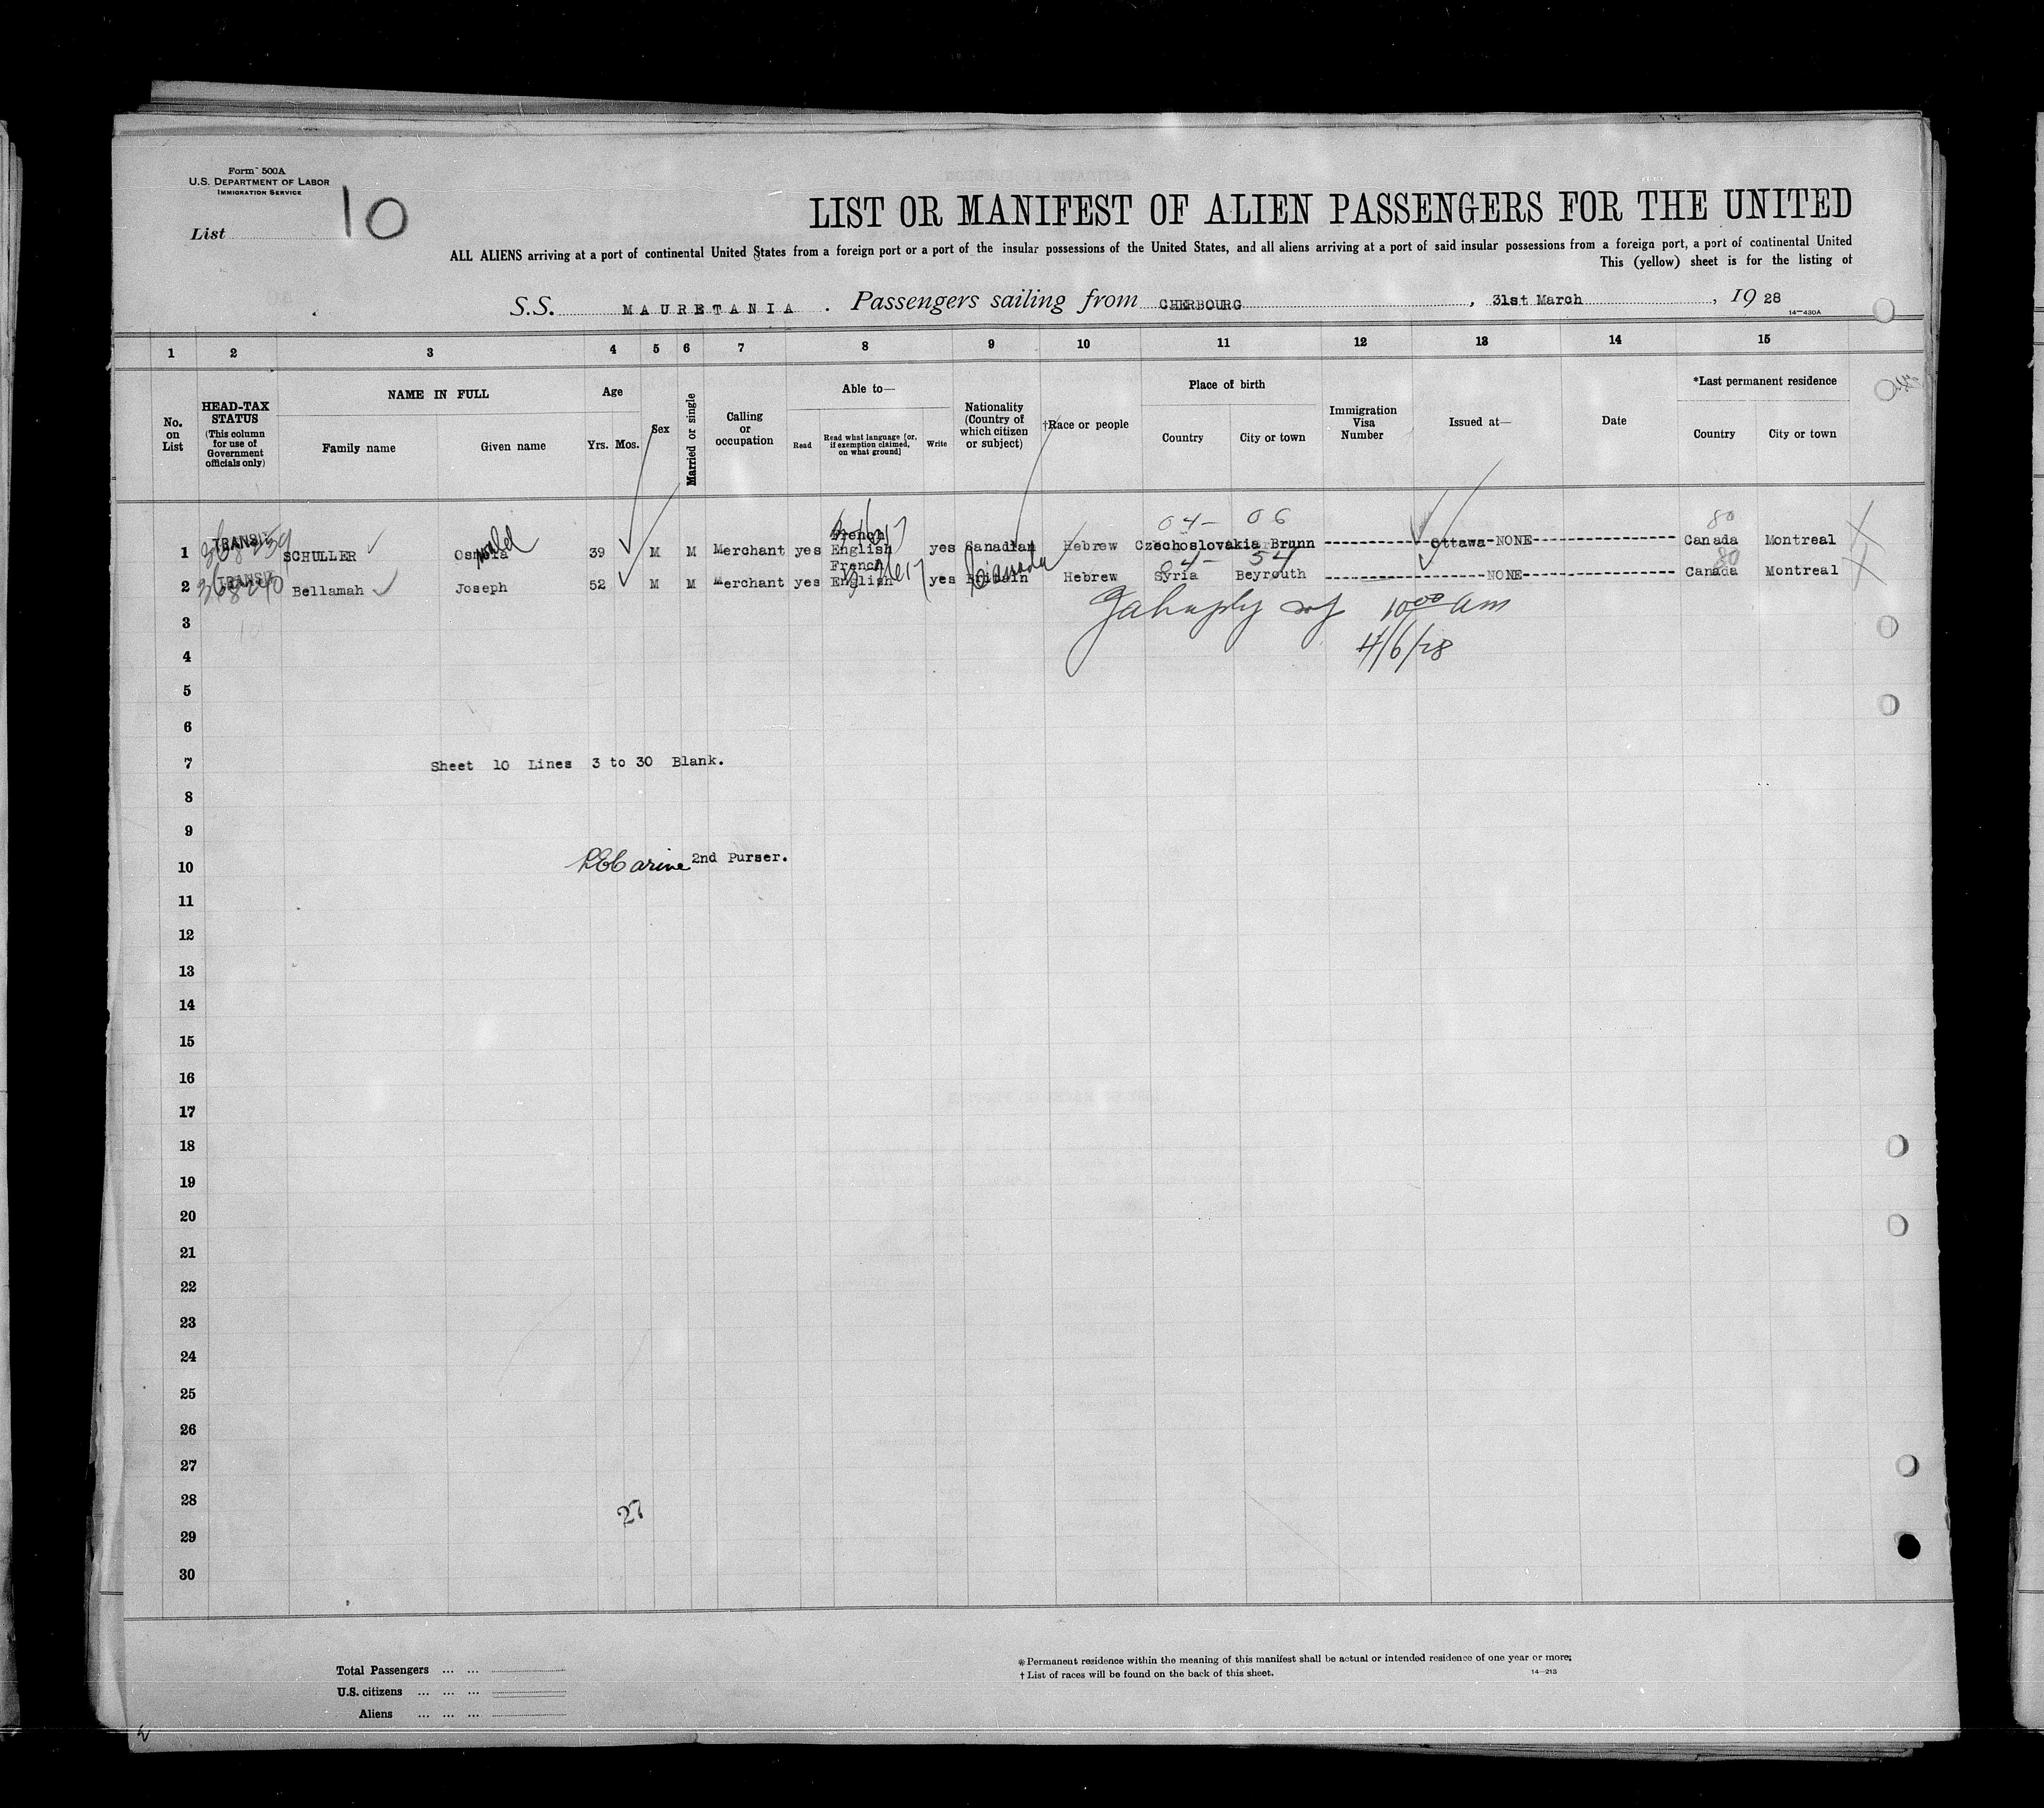 Form 500A
U.S. DEPARTMENT OF LABOR
IMMIGRATION SERVICE
List 10
LIST OR MANIFEST OF ALIEN PASSENGERS FOR THE UNITED
ALL ALIENS arriving at a port of continental United States from a foreign port or a port of the insular possessions of the United States, and all aliens arriving at a port of said insular possessions from a foreign port, a port of continental United
This (yellow) sheet is for the listing of
S.S. MAURETANIA. Passengers sailing from CHERBOURG, 31st March, 19 28
14—430A
1 2 3 4 5 6 7 8 9 10 11 12 13 14 15
No. on List
HEAD-TAX STATUS (This column for use of Government officials only)
NAME IN FULL
Family name Given name
Age
Yrs. Mos.
Sex
Married or single
Calling or occupation
Able to—
Read
Read what language [or, if exemption claimed, on what ground]
Write
Nationality (Country of which citizen or subject)
†Race or people
Place of birth
Country City or town
Immigration Visa Number
Issued at—
Date
*Last permanent residence
Country City or town
04- 06 80
1 TRANSIT SCHULLER 39 M M Merchant yes French English yes Canadian Hebrew Czechoslovakia Brunn Ottawa-NONE Canada Montreal
04- 54 80
2 TRANSIT Bellamah Joseph 52 M M Merchant yes French English yes Britain Canada Hebrew Syria Beyrouth NONE Canada Montreal
3
10 00 am
4
4/6/28
5
6
7 Sheet 10 Lines 3 to 30 Blank.
8
9
10 2nd Purser.
11
12
13
14
15
16
17
18
19
20
21
22
23
24
25
26
27
28
27
29
30
Total Passengers ... ...
U.S. citizens ... ... ...
Aliens ... ... ...
*Permanent residence within the meaning of this manifest shall be actual or intended residence of one year or more.
† List of races will be found on the back of this sheet.
14—213